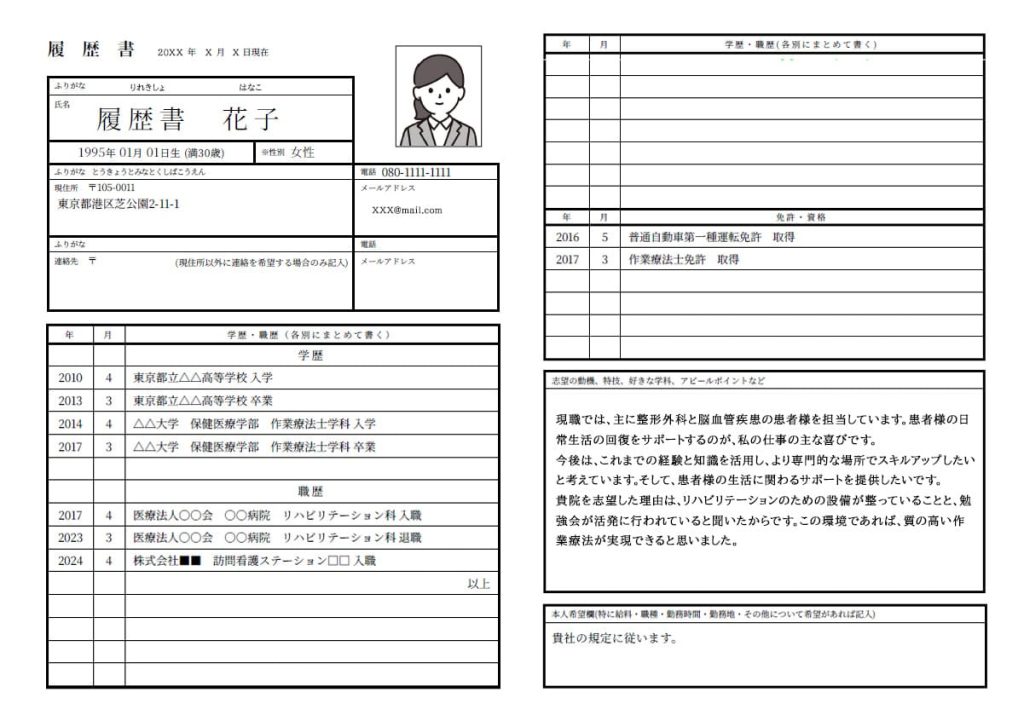 履 歴 書 20XX 年 X 月 X 日現在
ふりがな りれきしょ はなこ
氏名
履歴書 花子
1995年 01月 01日生 (満30歳) ※性別 女性
ふりがな とうきょうとみなとくしばこうえん
現住所 〒105-0011
東京都港区芝公園2-11-1
電話 080-1111-1111
メールアドレス
XXX@mail.com
ふりがな
連絡先 〒 (現住所以外に連絡を希望する場合のみ記入)
電話
メールアドレス
年 月 学歴・職歴(各別にまとめて書く)
学歴
2010 4 東京都立△△高等学校 入学
2013 3 東京都立△△高等学校 卒業
2014 4 △△大学 保健医療学部 作業療法士学科 入学
2017 3 △△大学 保健医療学部 作業療法士学科 卒業
職歴
2017 4 医療法人〇〇会 〇〇病院 リハビリテーション科 入職
2023 3 医療法人〇〇会 〇〇病院 リハビリテーション科 退職
2024 4 株式会社■■ 訪問看護ステーション□□ 入職
以上
年 月 学歴・職歴(各別にまとめて書く)
年 月 免許・資格
2016 5 普通自動車第一種運転免許 取得
2017 3 作業療法士免許 取得
志望の動機、特技、好きな学科、アピールポイントなど
現職では、主に整形外科と脳血管疾患の患者様を担当しています。患者様の日
常生活の回復をサポートするのが、私の仕事の主な喜びです。
今後は、これまでの経験と知識を活用し、より専門的な場所でスキルアップしたい
と考えています。そして、患者様の生活に関わるサポートを提供したいです。
貴院を志望した理由は、リハビリテーションのための設備が整っていることと、勉
強会が活発に行われていると聞いたからです。この環境であれば、質の高い作
業療法が実現できると思いました。
本人希望欄(特に給料・職種・勤務時間・勤務地・その他について希望があれば記入)
貴社の規定に従います。